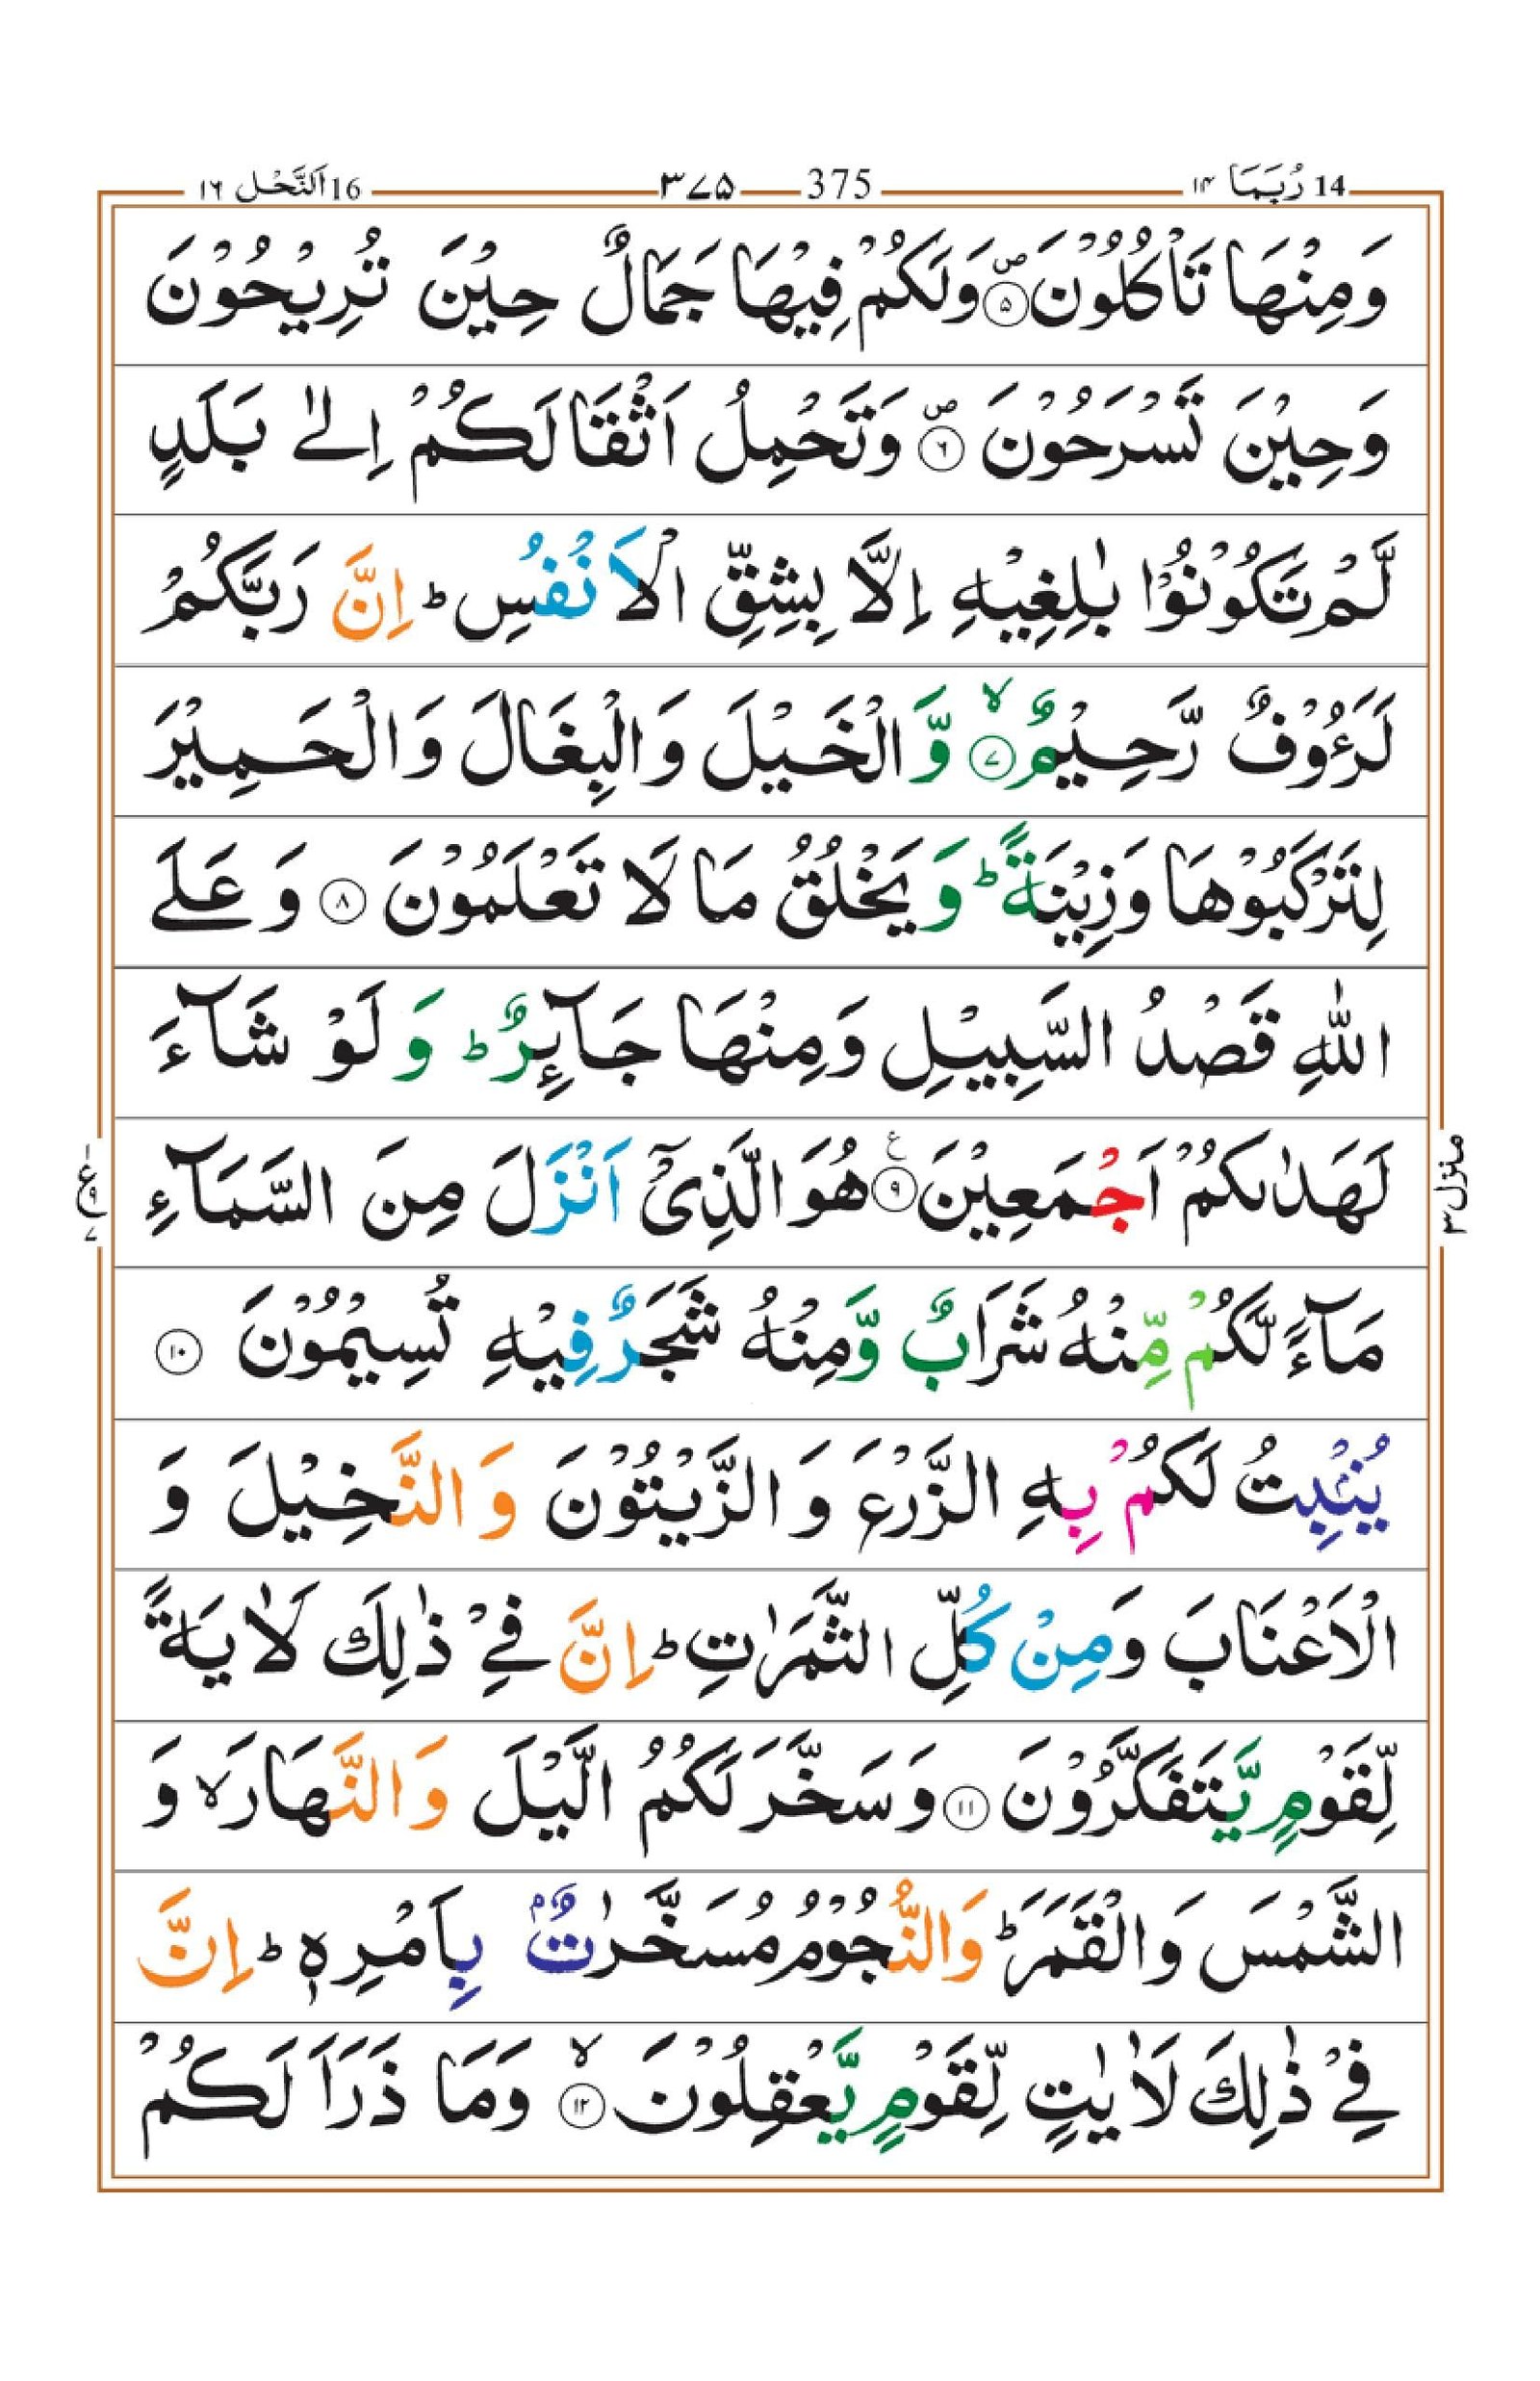 14 رُبَمَا ١٤ 375 ٣٧٥ 16 اَلنَّحْل ١٦
وَمِنْهَا تَاْكُلُوْنَ ۪۝۵ وَلَكُمْ فِيْهَا جَمَالٌ حِيْنَ تُرِيْحُوْنَ
وَحِيْنَ تَسْرَحُوْنَ ۪۝۶ وَتَحْمِلُ اَثْقَالَكُمْ اِلٰى بَلَدٍ
لَّمْ تَكُوْنُوْا بٰلِغِيْهِ اِلَّا بِشِقِّ الْاَنْفُسِ ؕ اِنَّ رَبَّكُمْ
لَرَءُوْفٌ رَّحِيْمٌ ۙ۝۷ وَّالْخَيْلَ وَالْبِغَالَ وَالْحَمِيْرَ
لِتَرْكَبُوْهَا وَزِيْنَةً ؕ وَيَخْلُقُ مَا لَا تَعْلَمُوْنَ ۝۸ وَعَلَى
اللّٰهِ قَصْدُ السَّبِيْلِ وَمِنْهَا جَآئِرٌ ؕ وَلَوْ شَآءَ
لَهَدٰىكُمْ اَجْمَعِيْنَ ۝۹ ع هُوَ الَّذِيْۤ اَنْزَلَ مِنَ السَّمَآءِ
مَآءً لَّكُمْ مِّنْهُ شَرَابٌ وَّمِنْهُ شَجَرٌ فِيْهِ تُسِيْمُوْنَ ۝۱۰
يُنْۢبِتُ لَكُمْ بِهِ الزَّرْعَ وَالزَّيْتُوْنَ وَالنَّخِيْلَ وَ
الْاَعْنَابَ وَمِنْ كُلِّ الثَّمَرٰتِ ؕ اِنَّ فِيْ ذٰلِكَ لَاٰيَةً
لِّقَوْمٍ يَّتَفَكَّرُوْنَ ۝۱۱ وَسَخَّرَ لَكُمُ الَّيْلَ وَالنَّهَارَ ۙ وَ
الشَّمْسَ وَالْقَمَرَ ؕ وَالنُّجُوْمُ مُسَخَّرٰتٌۢ بِاَمْرِهٖ ؕ اِنَّ
فِيْ ذٰلِكَ لَاٰيٰتٍ لِّقَوْمٍ يَّعْقِلُوْنَ ۙ۝۱۲ وَمَا ذَرَاَ لَكُمْ
منزل ۳
ع ۱ ۹ ۷